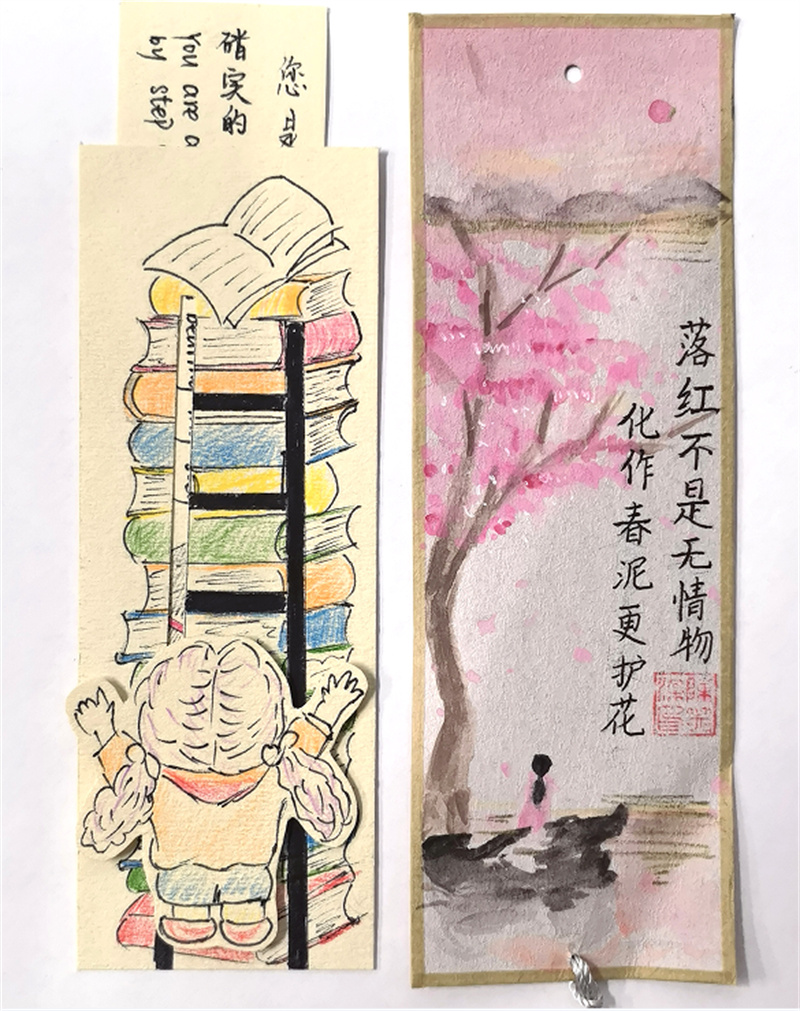 您是
实的
You are
by step
落红不是无情物
化作春泥更护花